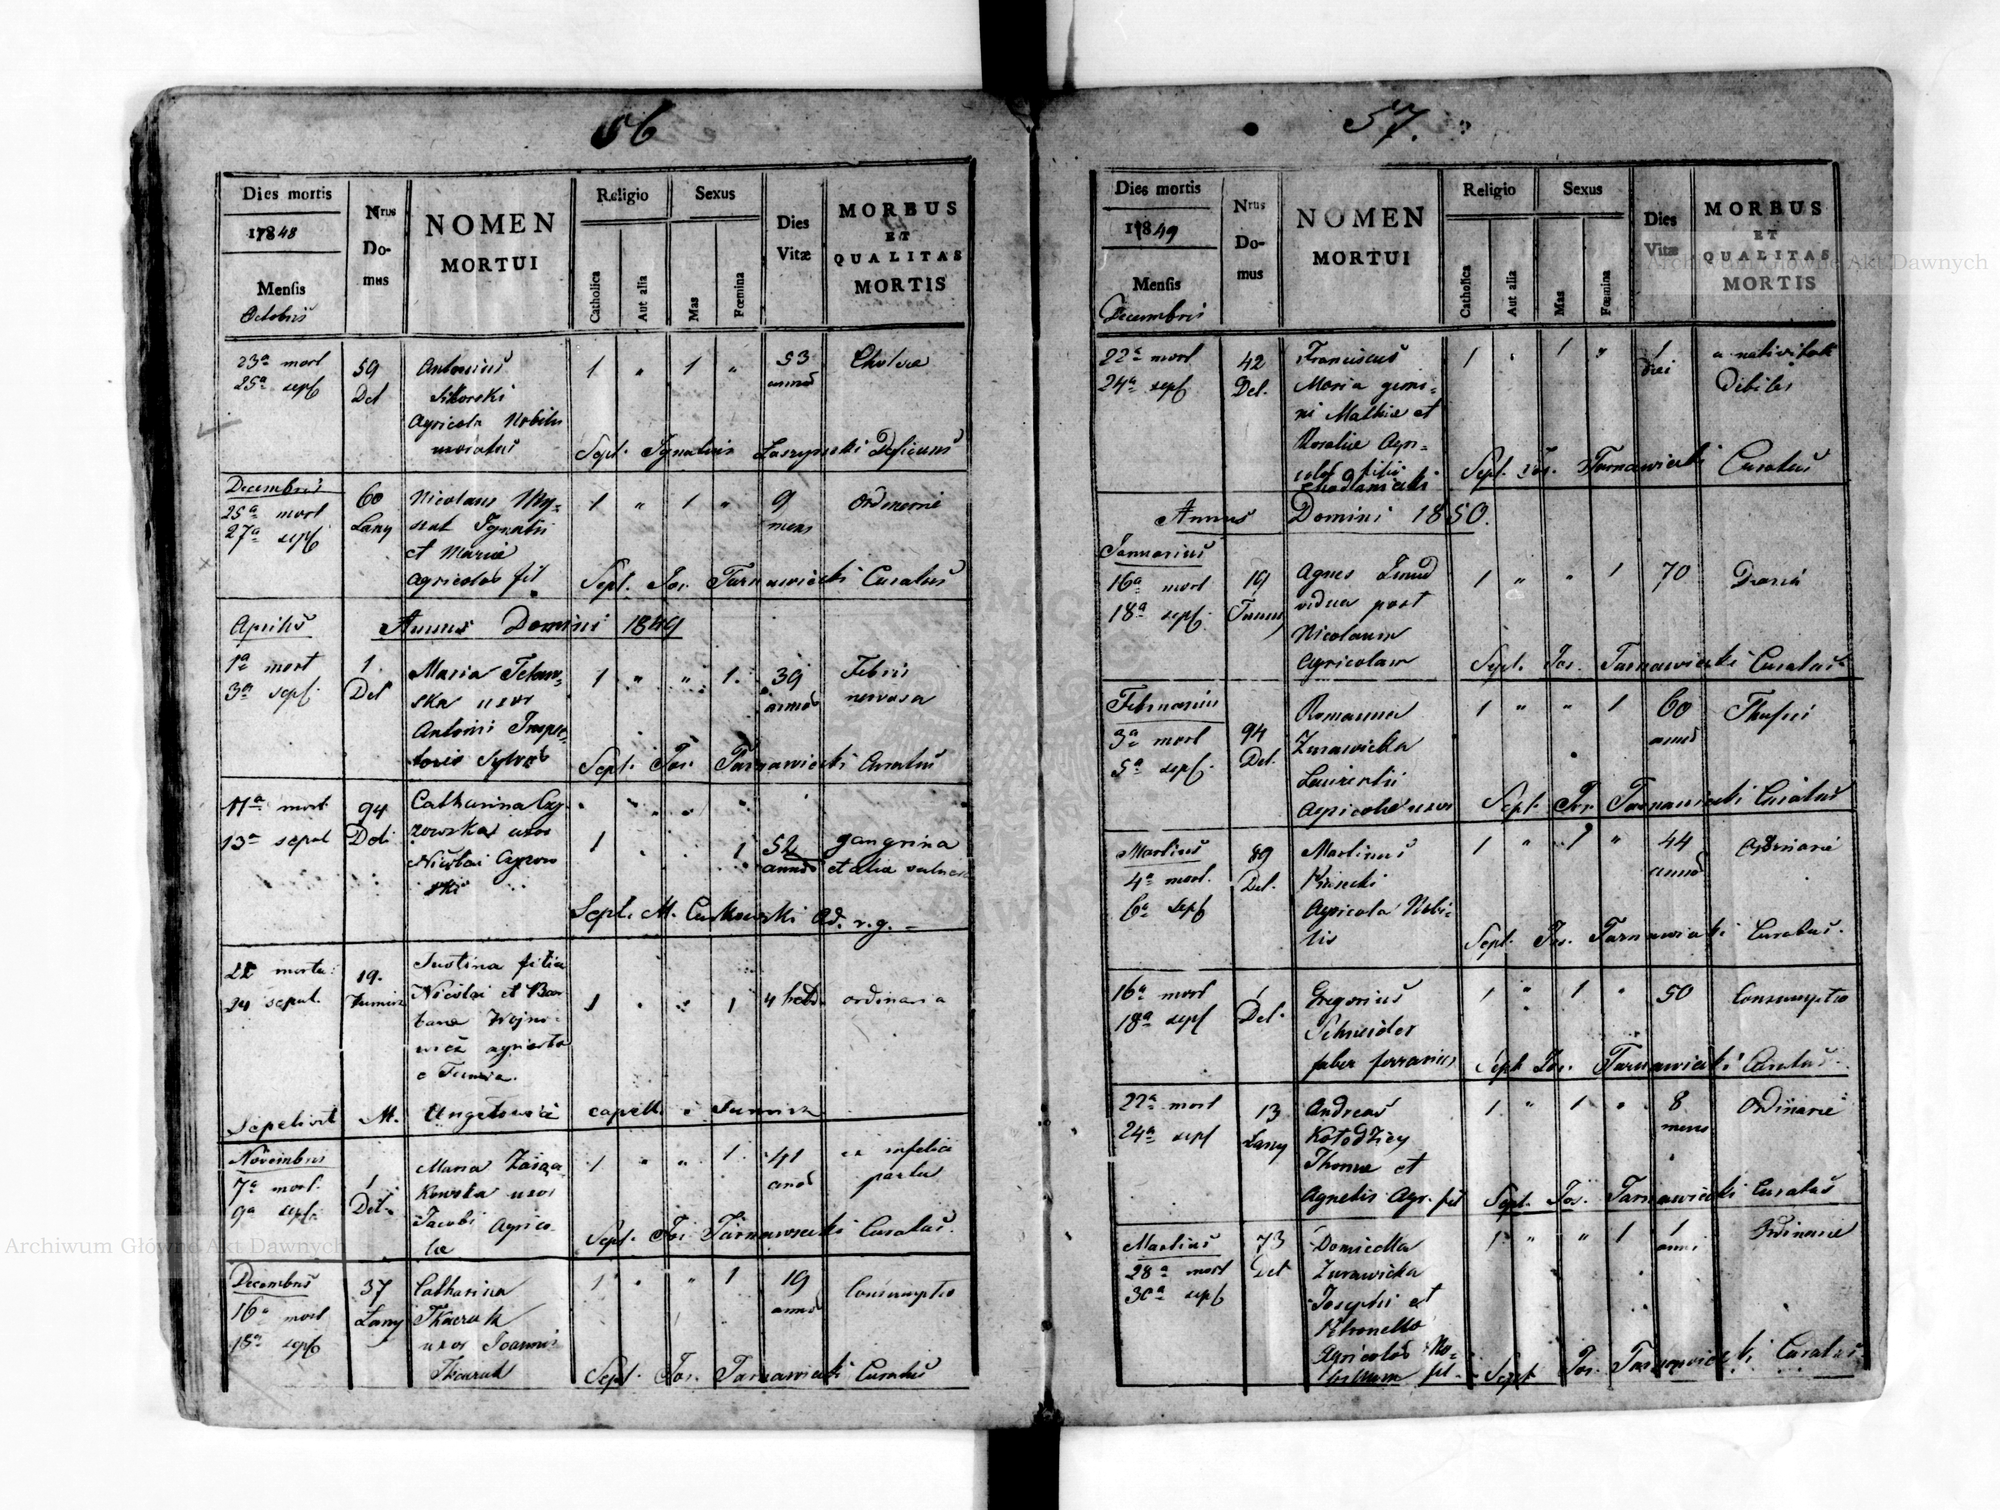 56
Dies mortis
1848
Mensis
Octobris
Nrus
Do-
mus
NOMEN
MORTUI
Religio
Catholica
Aut alia
Sexus
Mas
Fœmina
Dies
Vitæ
MORBUS
ET
QUALITAS
MORTIS
23a mort
25a sept
59
Det
Antonius
Sikorski
Agricola Nobilis
1 " 1 "
53
annos
Cholera
Sept. Ignatius Deficiens
Decembris
25a mort
27a sept
60
Lany
Nicolaus
Ignatii
et Mariæ
Agricolas fil
1 " 1 "
9
mens
Ordinarie
Sept. Jos. Tarnawiecki Curatus
Aprilis
Annus Domini 1849
1a mort
3a sept.
1.
Det
Maria
ska uxor
Antonii Inspec-
toris Sylvas
1 " " 1.
39
annos
Febris
nervosa
Sept. Jos. Tarnawiecki Curatus
11a mort.
13a sepul
94
Det:
Catharina Czy-
zowska uxor
Nicolai Czyzow
ski
1 1
52
annos
gangrina
et alia vulnera
Sept. M.
22 mortu:
24 sepul.
19.
Justina filia
Nicolai et Bar
bara Wojno-
wicz agricola
1 1
4 hebd.
ordinaria
Sepelivit M. capell:
Novembris
7a mort.
9a sept:
1
Det.
Maria
kowska uxor
Jacobi Agrico-
læ
1 " " 1
41
anos
ex infelici
partu
Sept. Jos. Tarnawiecki Curatus.
Decembris
16a mort
18a sept
37
Lany
Catharina
Tkaczuk
uxor Joannis
Tkaczuk
1 " " 1
19
annos
Consumptio
Sept. Jos. Tarnawiecki Curatus
57.
Dies mortis
1849
Mensis
Decembris
Nrus
Do-
mus
NOMEN
MORTUI
Religio
Catholica
Aut alia
Sexus
Mas
Fœmina
Dies
Vitæ
MORBUS
ET
QUALITAS
MORTIS
22a mort
24a sept
42
Det.
Franciscus
Maria gemi-
ni Mathiæ et
Rosaliæ Agri-
colas filii
1 " 1 "
1
diei
a nativitate
Debiles
Sept. Jos. Tarnawiecki Curatus
Annus Domini 1850.
Januarius
16a mort
18a sept.
19
Agnes
vidua post
Nicolaum
Agricolam
1 " " 1
70
Sept. Jos. Tarnawiecki Curatus
Februarius
3a mort
5a sept.
94
Det.
Romanna
Zurawicka
Laurentii
Agricolæ uxor
1 " " 1
60
annos
Sept. Jos. Tarnawiecki Curatus
Martius
4a mort.
6a Sept
89
Det.
Martinus
Agricola Nobi-
lis
1 " 1 "
44
annos
Ordinarie
Sept. Jos. Tarnawiecki Curatus.
16a mort
18a sept
1
Det.
Gregorius
Schneider
faber ferrarius
1 " 1 "
50
Consumptio
Sept Jos. Tarnawiecki Curatus.
22a mort
24a sept
13
Lany
Andreas
Kołodziey
Thomæ et
Agnetis Agr. fil
1 " 1 "
8
mens
Ordinarie
Sept. Jos. Tarnawiecki Curatus
Martius
28a mort
30a sept
73
Det
Domicella
Zurawicka
Josephi et
Petronella
Agricolas No-
bilium fil.
1 " " 1
1
anni
Ordinarie
Sept Jos. Tarnawiecki Curatus
Archiwum Główne Akt Dawnych
Archiwum Główne Akt Dawnych